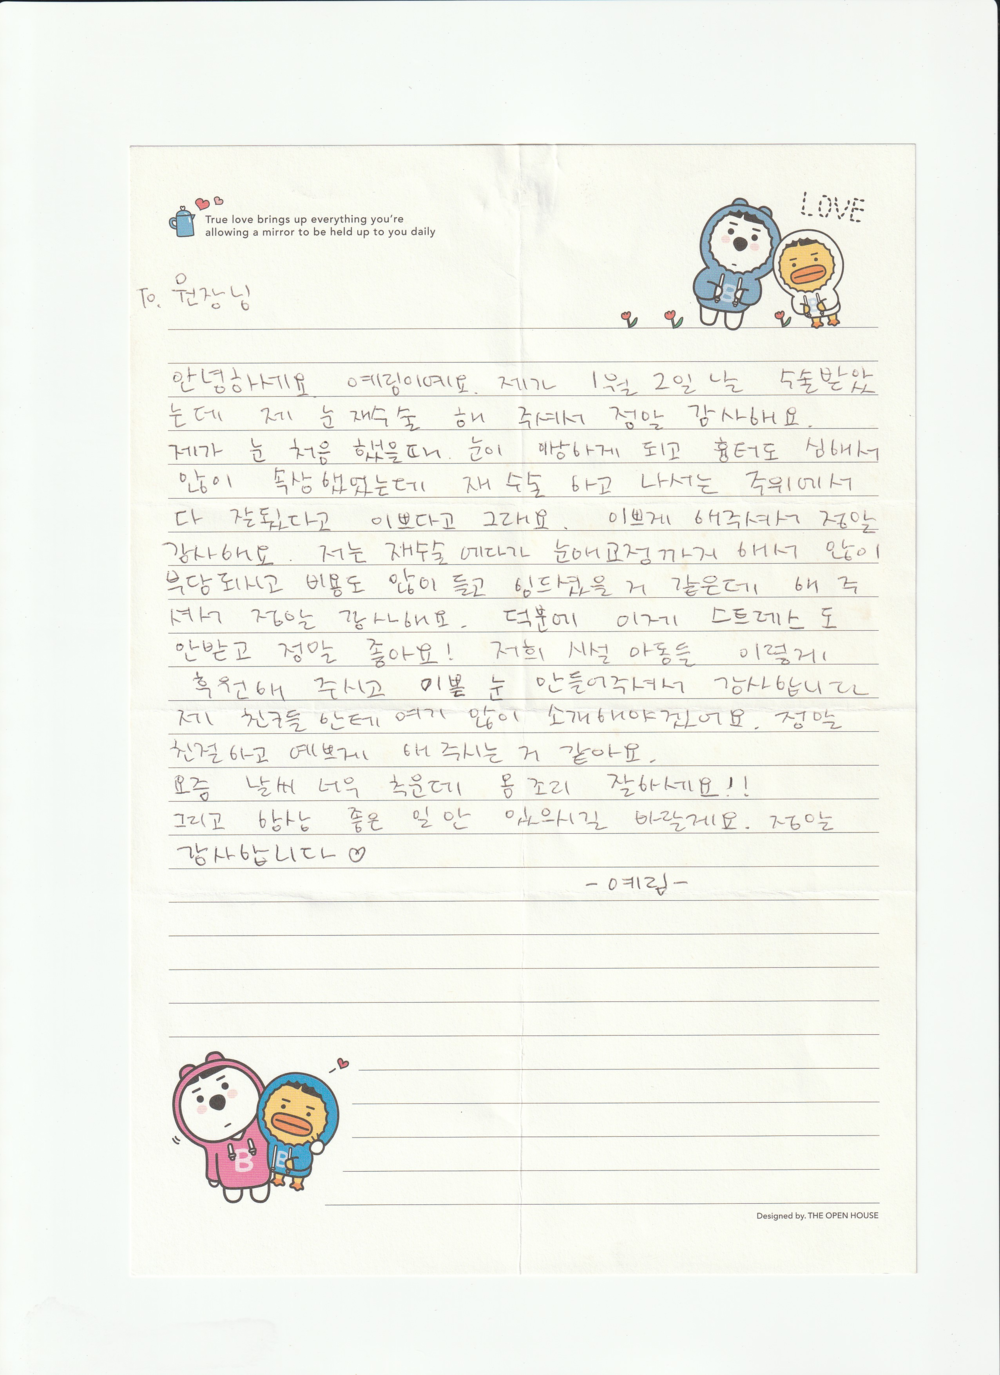 True love brings up everything you're
allowing a mirror to be held up to you daily
LOVE
To. 원장님
안녕하세요 예림이예요. 제가 1월 2일 날 수술받았
는데 제 눈 재수술 해 주셔서 정말 감사해요.
제가 눈 처음 했을때 눈이 짝하게 되고 흉터도 심해서
많이 속상했었는데 재수술 하고 나서는 주위에서
다 잘됬다고 이쁘다고 그래요. 이쁘게 해주셔서 정말
감사해요. 저는 재수술에다가 눈매교정까지 해서 많이
부담되시고 비용도 많이 들고 힘드셨을 거 같은데 해 주
셔서 정말 감사해요. 덕분에 이제 스트레스도
안받고 정말 좋아요! 저희 시설 아동들 이렇게
후원해 주시고 이쁜 눈 만들어주셔서 감사합니다
제 친구들 한테 여기 많이 소개해야겠어요. 정말
친절하고 예쁘게 해 주시는 거 같아요.
요즘 날씨 너무 추운데 몸 조리 잘하세요!!
그리고 항상 좋은 일 만 있으시길 바랄게요. 정말
감사합니다 ♡
-예림-
B
B
Designed by. THE OPEN HOUSE